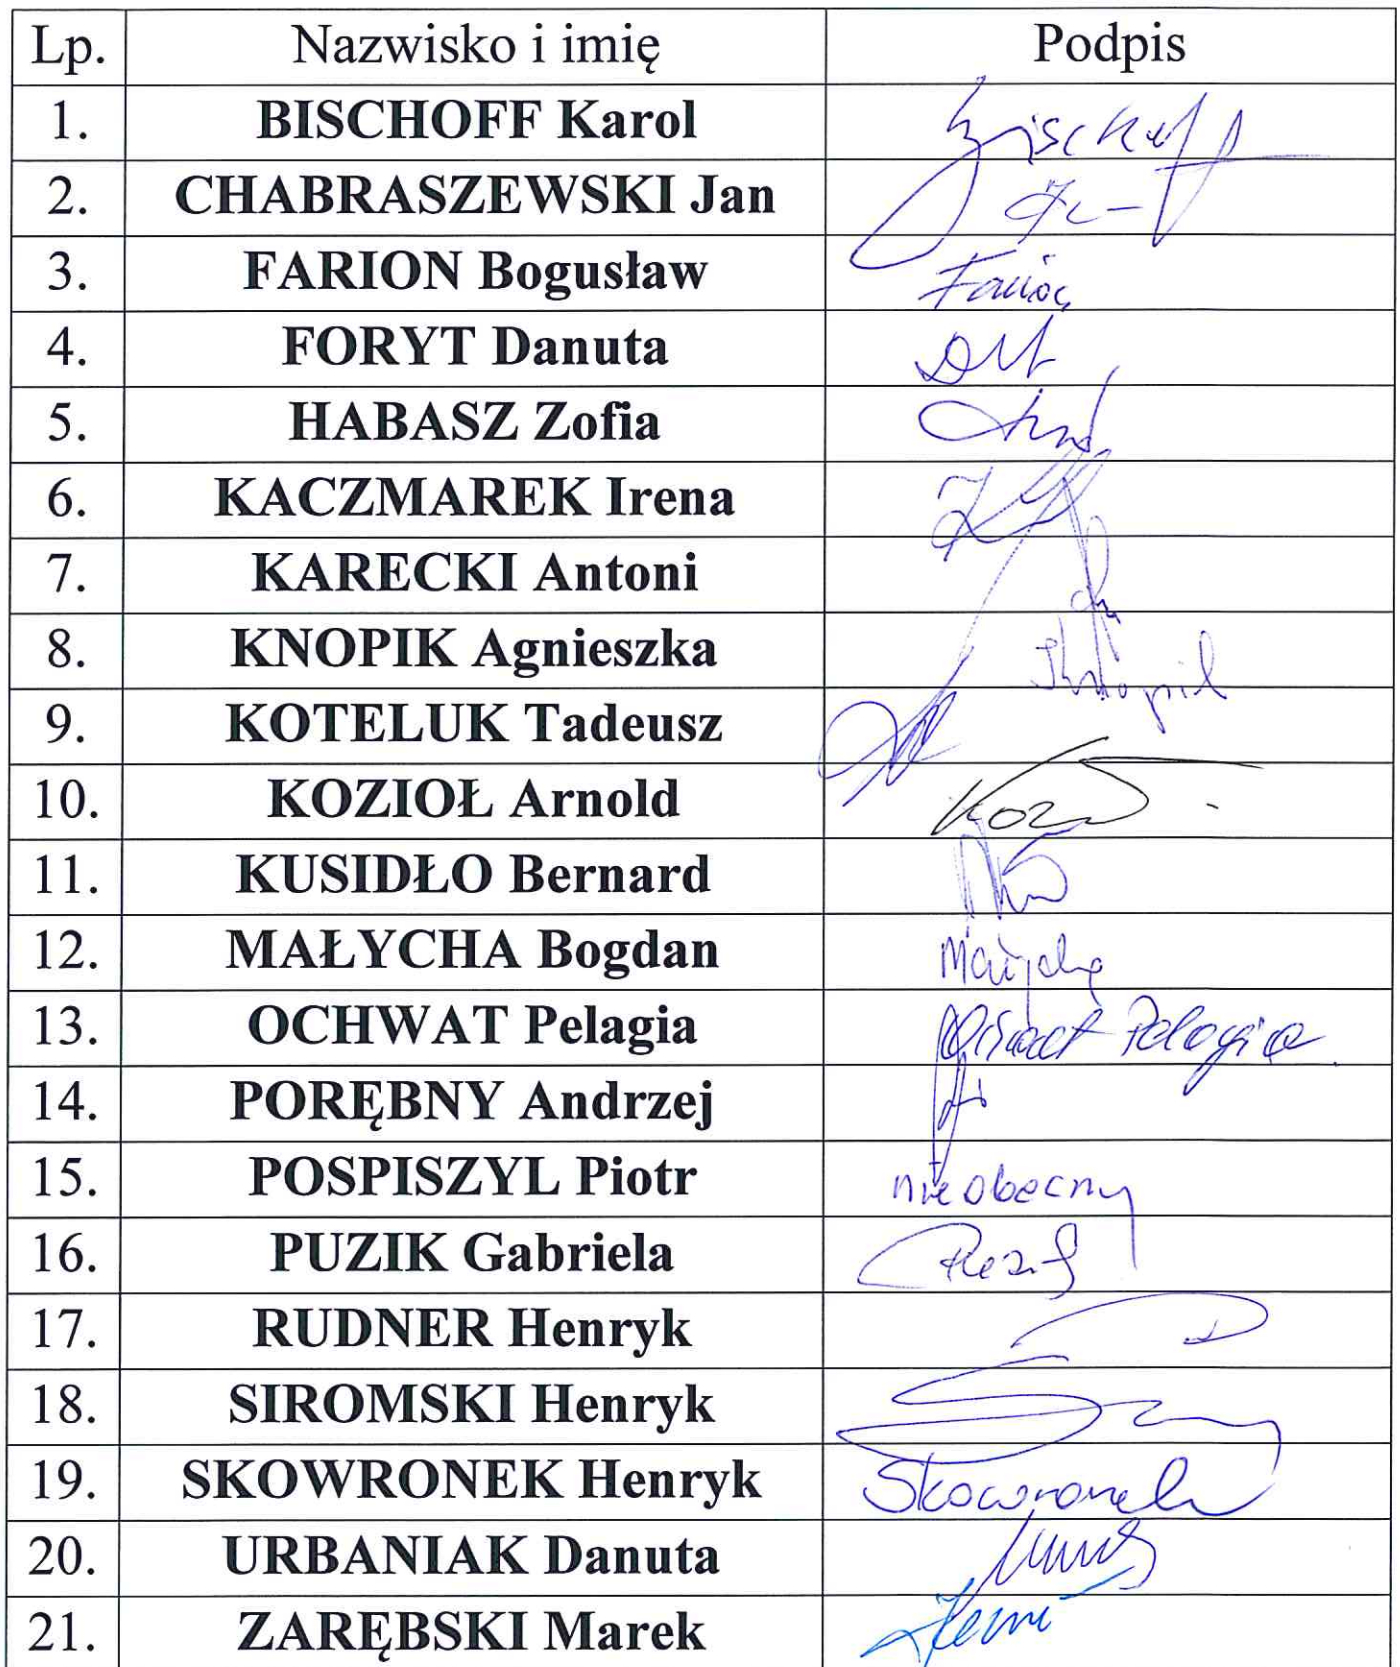 Lp. Nazwisko i imię Podpis
1. BISCHOFF Karol Bischoff
2. CHABRASZEWSKI Jan
3. FARION Bogusław
4. FORYT Danuta
5. HABASZ Zofia
6. KACZMAREK Irena
7. KARECKI Antoni
8. KNOPIK Agnieszka
9. KOTELUK Tadeusz
10. KOZIOŁ Arnold
11. KUSIDŁO Bernard
12. MAŁYCHA Bogdan Małycha
13. OCHWAT Pelagia Ochwat Pelagia
14. PORĘBNY Andrzej
15. POSPISZYL Piotr nieobecny
16. PUZIK Gabriela
17. RUDNER Henryk
18. SIROMSKI Henryk
19. SKOWRONEK Henryk Skowronek
20. URBANIAK Danuta
21. ZARĘBSKI Marek